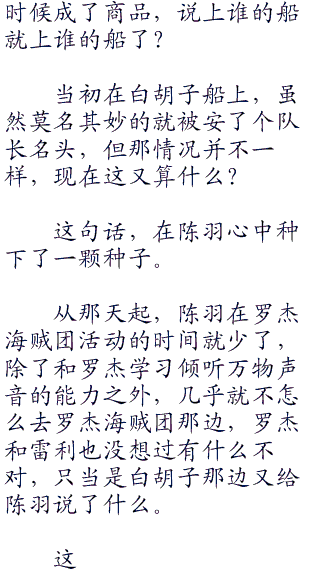 时候成了商品，说上谁的船
就上谁的船了？
当初在白胡子船上，虽
然莫名其妙的就被安了个队
长名头，但那情况并不一
样，现在这又算什么？
这句话，在陈羽心中种
下了一颗种子。
从那天起，陈羽在罗杰
海贼团活动的时间就少了，
除了和罗杰学习倾听万物声
音的能力之外，几乎就不怎
么去罗杰海贼团那边，罗杰
和雷利也没想过有什么不
对，只当是白胡子那边又给
陈羽说了什么。
这